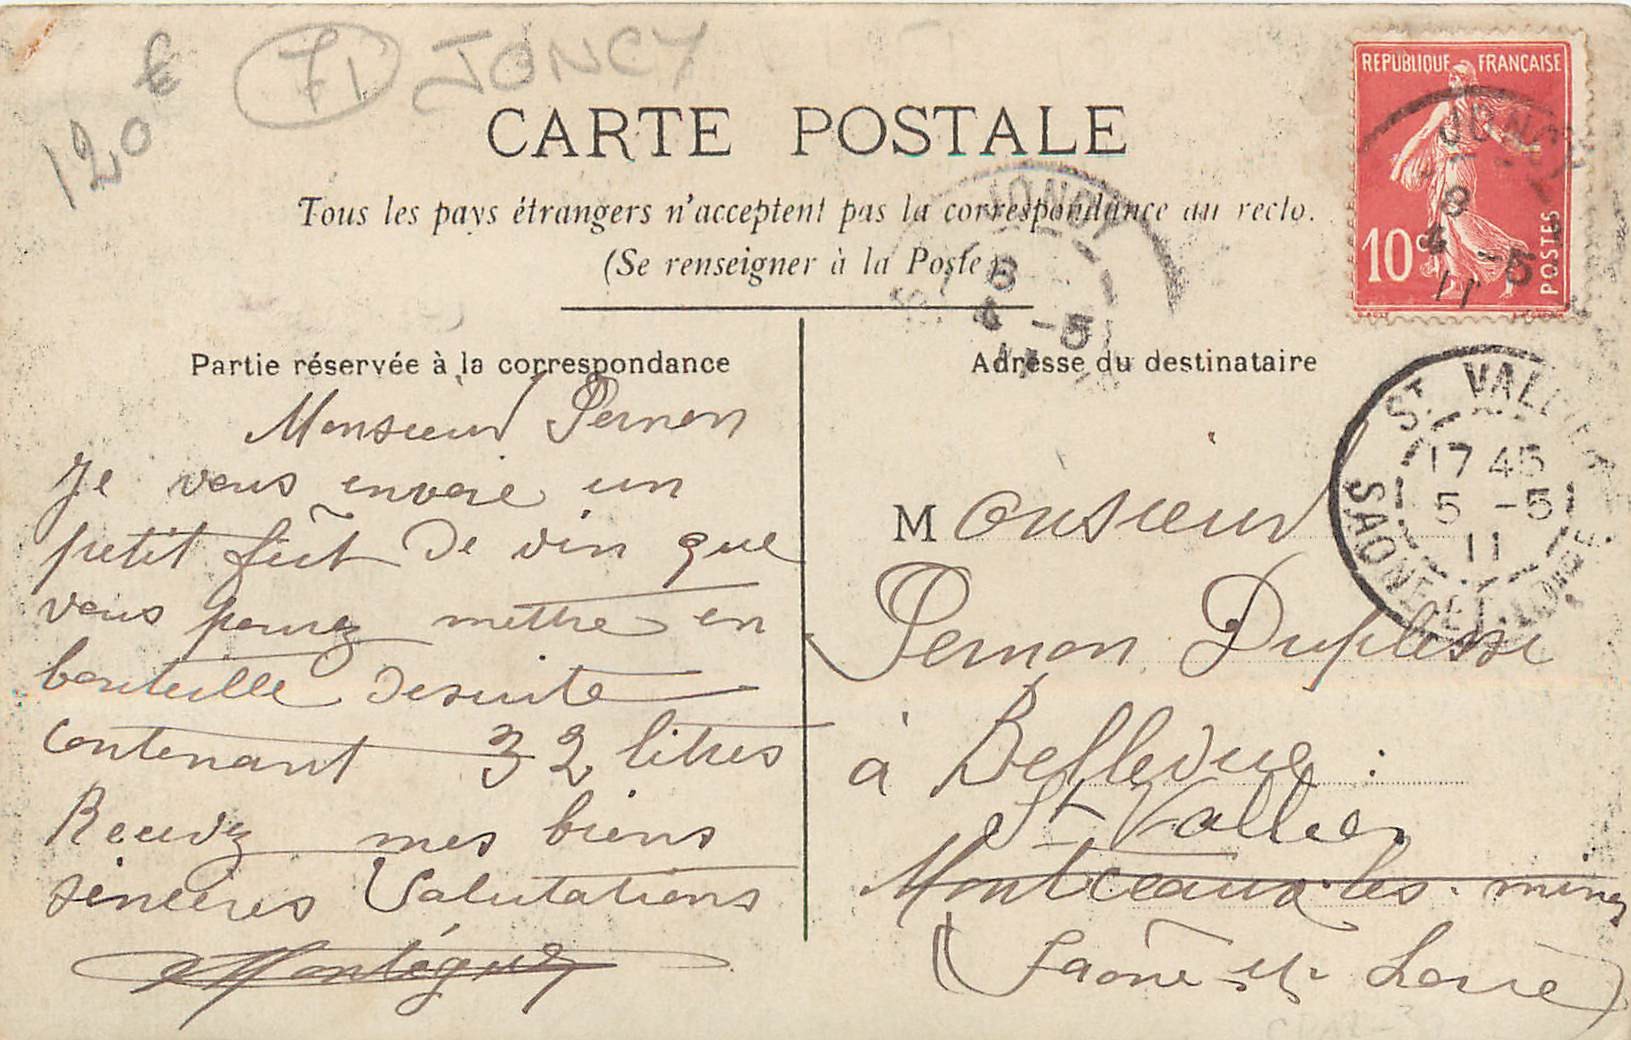 120 €
71 JONCY
REPUBLIQUE FRANÇAISE
10c
POSTES
JONCY
8
4 -5
11
CARTE POSTALE
Tous les pays étrangers n'acceptent pas la correspondance au recto.
(Se renseigner à la Poste)
JONCY
8
4 -5
11
Partie réservée à la correspondance
Monsieur Pernon
Je vous envoie un
petit fût de vin que
vous pourez mettre en
bouteille desuite
contenant 32 litres
Recevez mes biens
sincères Salutations
Adresse du destinataire
ST VALLIER
17 45
5 -5
11
SAONE-ET-LOIRE
Monsieur
Pernon Duplessi
à Bellevue :
St Vallier
Montceaux-les-mines
(Saône et Loire)